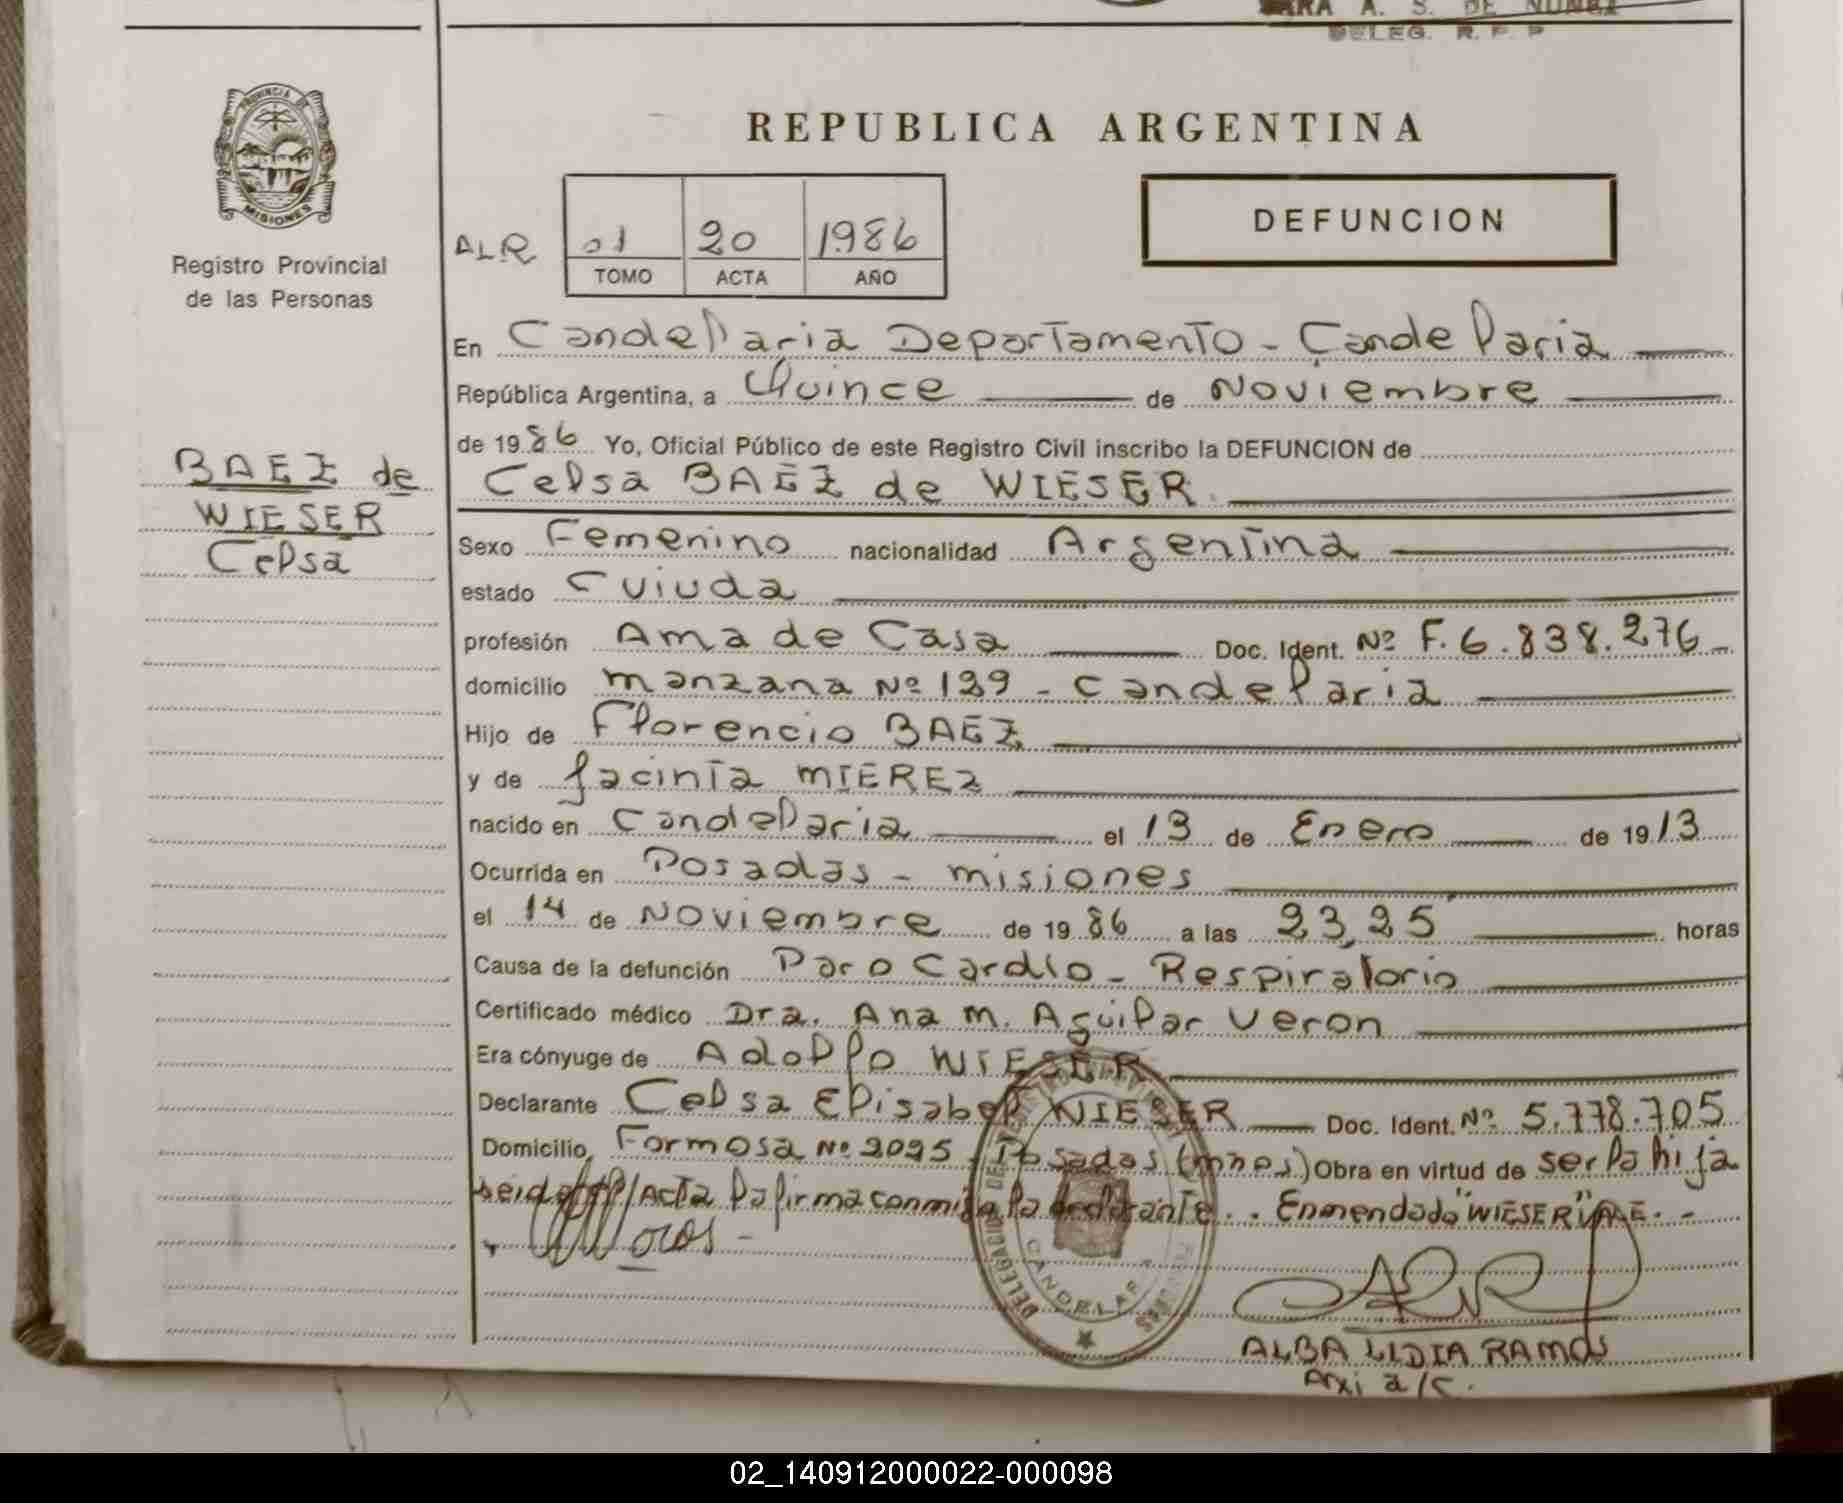 SARA A. S. DE NUÑEZ
DELEG. R. P. P
PROVINCIA DE
MISIONES
Registro Provincial
de las Personas
REPUBLICA ARGENTINA
ALR 01 20 1986
TOMO ACTA AÑO
DEFUNCION
BAEZ de
WIESER
Celsa
En Candelaria Departamento - Candelaria
República Argentina, a Quince de Noviembre
de 1986 Yo, Oficial Público de este Registro Civil inscribo la DEFUNCION de
Celsa BAEZ de WIESER
Sexo Femenino nacionalidad Argentina
estado viuda
profesión Ama de Casa Doc. Ident. Nº F. 6.838.276
domicilio manzana Nº 139 - Candelaria
Hijo de Florencio BAEZ
y de Jacinta MIEREZ
nacido en Candelaria el 13 de Enero de 1913
Ocurrida en Posadas - misiones
el 14 de Noviembre de 1986 a las 23,25 horas
Causa de la defunción Paro Cardio - Respiratorio
Certificado médico Dra. Ana M. Aguilar Veron
Era cónyuge de Adolfo WIESER
Declarante Celsa Elisabel WIESER Doc. Ident. Nº 5.778.705
Domicilio Formosa Nº 2095 - Posadas (mnes) Obra en virtud de ser la hija
Leida el Acta la firma conmigo la declarante.. Enmendado "WIESER" VALE. -
DELEGACION CANDELARIA MISIONES
ALBA LIDIA RAMOS
a/c.
02_140912000022-000098